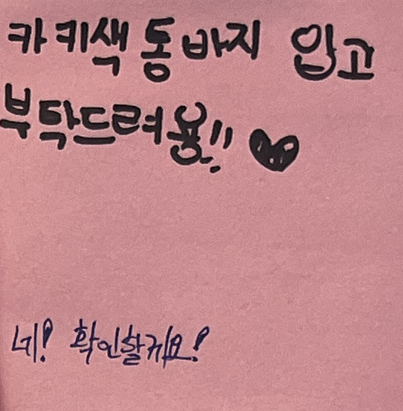 카키색 통바지 입고
부탁드려용!! ♥
네! 확인할게요!